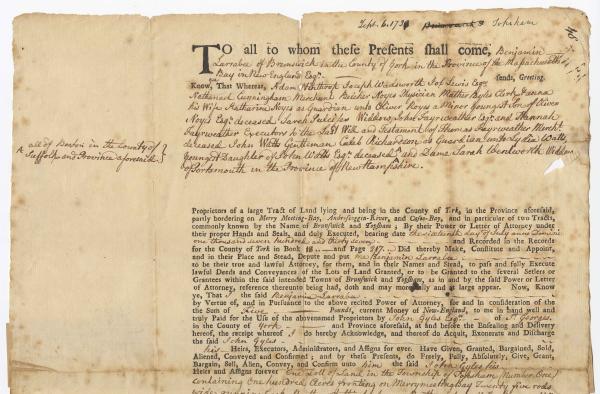 Sept. 6. 173 Topsham
TO all to whom these Presents shall come, Benjamin
Larrabee of Brunswick in the County of York in the Province of the Massachusetts
Bay in New England Esqr. sends, Greeting.
Know, That Whereas, Adam Winthrop Joseph Wadsworth Job Lewis Esqrs
Nathanael Cunningham Merchant Belcher Noyes Physician Mather Byles Clerk & Anna
his Wife Katharine Noyes as Guardian unto Oliver Noyes a Minor youngest Son of Oliver
Noyes Esqr deceased Sarah Widdow, John Fayrweather Esqr and Hannah
Fayrweather Executors to the Last Will and Testament of Thomas Fayrweather Mercht
deceased John Watts Gentleman Caleb Richardson as Guardian unto Lydia Watts
youngest Daughter of John Watts Esqr deceased ^ and Dame Sarah Wentworth Widdow
of Portsmouth in the Province of New Hampshire.
^ all of Boston in the County of
Suffolk and Province aforesaid
Proprietors of a large Tract of Land lying and being in the County of York, in the Province aforesaid,
partly bordering on Merry Meeting-Bay, Androscoggin-River, and Casco-Bay, and in particular of two Tracts,
commonly known by the Name of Brunswick and Topsham; By their Power or Letter of Attorney under
their proper Hands and Seals, and duly Executed, bearing date the sixteenth day of
one thousand seven hundred and thirty seven and Recorded in the Records
for the County of York in Book 18 and Page 217. Did thereby Make, Constitute and Appoint,
and in their Place and Stead, Depute and put me Benjamin Larrabee
to be their true and lawful Attorney, for them, and in their Names and Stead, to pass and fully Execute
lawful Deeds and Conveyances of the Lots of Land Granted, or to be Granted to the several Settlers or
Grantees within the said intended Towns of Brunswick and Topsham, as in and by the said Power or Letter
of Attorney, reference thereunto being had, doth and may more fully and at large appear. Now, Know
ye, That I the said Benjamin Larrabee
by Vertue of, and in Pursuance to the above recited Power of Attorney, for and in consideration of the
the Sum of Five Pounds, current Money of New-England, to me in hand well and
truly Paid for the Use of the abovenamed Proprietors by John Gyles Esqr of St Georges
in the County of York and Province aforesaid, at and before the Ensealing and Delivery
hereof, the receipt whereof I do hereby Acknowledge, and thereof do Acquit, Exonerate and Discharge
the said John Gyles
his Heirs, Executors, Administrators, and Assigns for ever. Have Given, Granted, Bargained, Sold,
Aliened, Conveyed and Confirmed; and by these Presents, do Freely, Fully, Absolutely, Give, Grant,
Bargain, Sell, Alien, Convey, and Confirm unto him the said John Gyles his
Heirs and Assigns forever One Lott of Land in the Township of Topsham Number One
containing One hundred Acres fronting on Merrymeeting Bay Twenty five rods